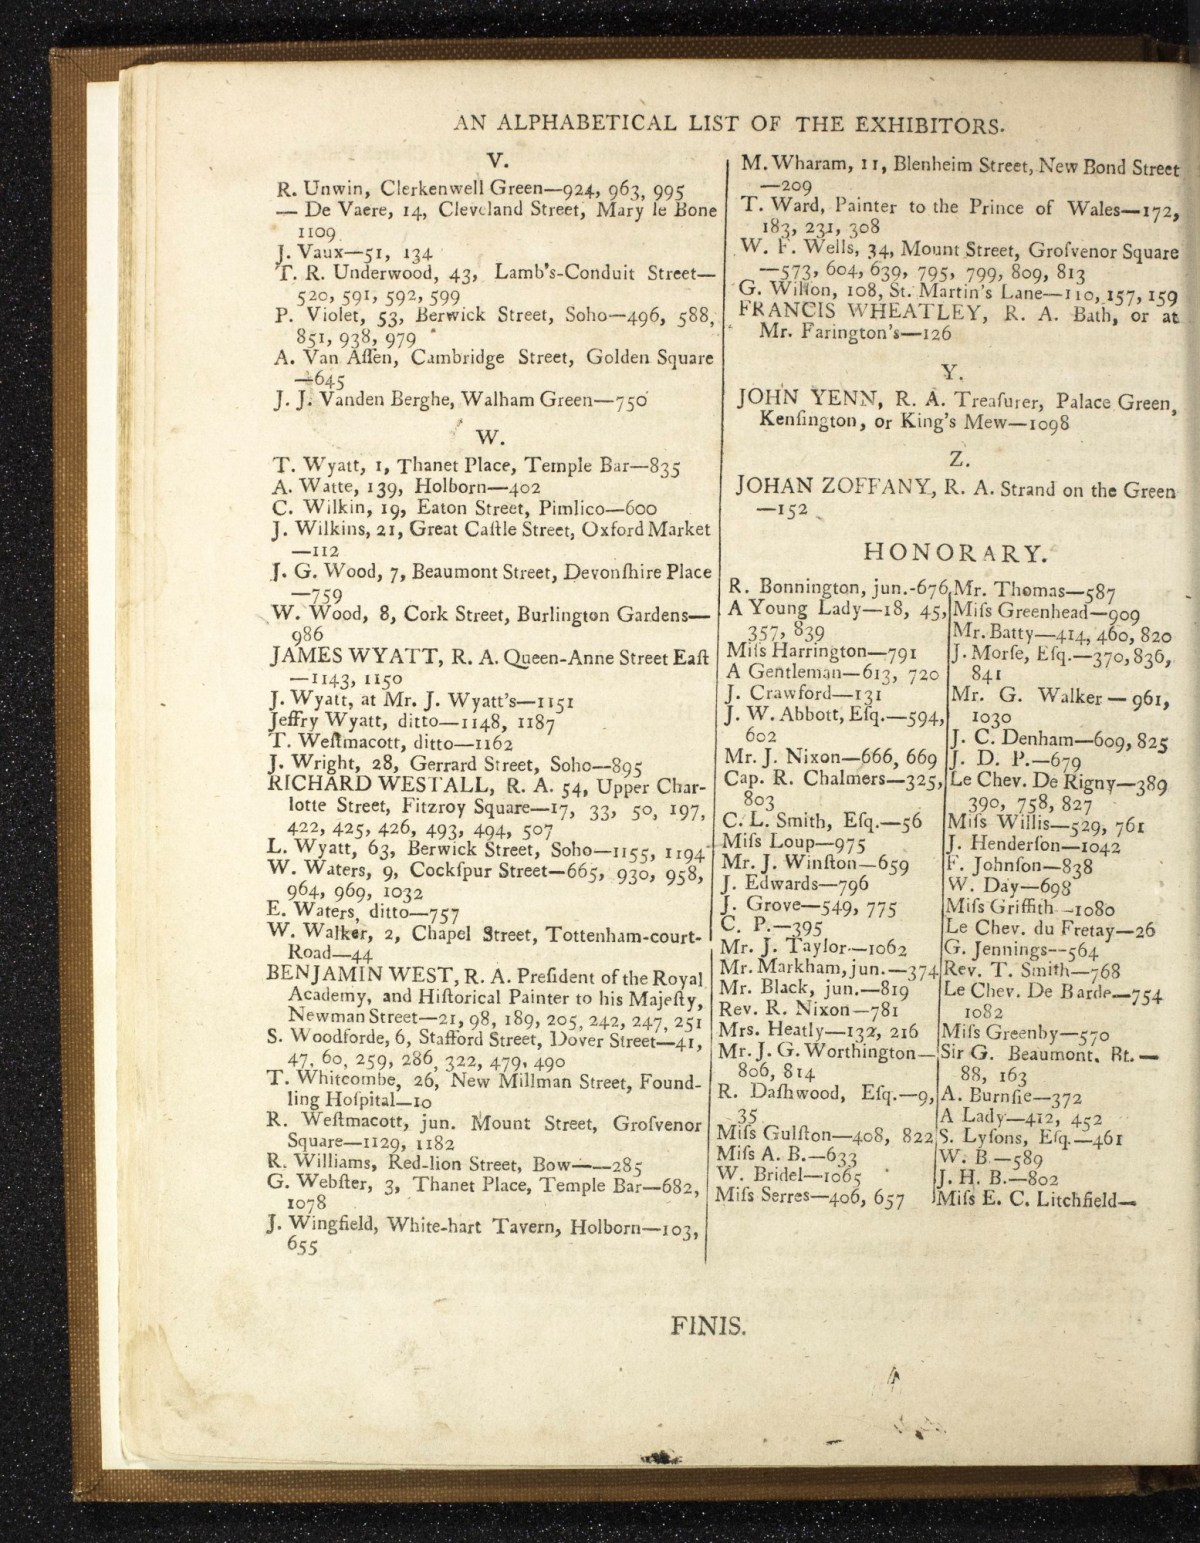 AN ALPHABETICAL LIST OF THE EXHIBITORS.
V.
R. Unwin, Clerkenwell Green—924, 963, 995
— De Vaere, 14, Cleveland Street, Mary le Bone
1109
J. Vaux—51, 134
T. R. Underwood, 43, Lamb's-Conduit Street—
520, 591, 592, 599
P. Violet, 53, Berwick Street, Soho—496, 588,
851, 938, 979
A. Van Aſſen, Cambridge Street, Golden Square
—645
J. J. Vanden Berghe, Walham Green—750
W.
T. Wyatt, 1, Thanet Place, Temple Bar—835
A. Watte, 139, Holborn—402
C. Wilkin, 19, Eaton Street, Pimlico—600
J. Wilkins, 21, Great Caſtle Street, Oxford Market
—112
J. G. Wood, 7, Beaumont Street, Devonſhire Place
—759
W. Wood, 8, Cork Street, Burlington Gardens—
986
JAMES WYATT, R. A. Queen-Anne Street Eaſt
—1143, 1150
J. Wyatt, at Mr. J. Wyatt's—1151
Jeffry Wyatt, ditto—1148, 1187
T. Weſtmacott, ditto—1162
J. Wright, 28, Gerrard Street, Soho—895
RICHARD WESTALL, R. A. 54, Upper Char-
lotte Street, Fitzroy Square—17, 33, 50, 197,
422, 425, 426, 493, 494, 507
L. Wyatt, 63, Berwick Street, Soho—1155, 1194
W. Waters, 9, Cockſpur Street—665, 930, 958,
964, 969, 1032
E. Waters, ditto—757
W. Walker, 2, Chapel Street, Tottenham-court-
Road—44
BENJAMIN WEST, R. A. Preſident of the Royal
Academy, and Hiſtorical Painter to his Majeſty,
Newman Street—21, 98, 189, 205, 242, 247, 251
S. Woodforde, 6, Stafford Street, Dover Street—41,
47, 60, 259, 286, 322, 479, 490
T. Whitcombe, 26, New Millman Street, Found-
ling Hoſpital—10
R. Weſtmacott, jun. Mount Street, Groſvenor
Square—1129, 1182
R. Williams, Red-lion Street, Bow——285
G. Webſter, 3, Thanet Place, Temple Bar—682,
1078
J. Wingfield, White-hart Tavern, Holborn—103,
655
M. Wharam, 11, Blenheim Street, New Bond Street
—209
T. Ward, Painter to the Prince of Wales—172,
183, 231, 308
W. F. Wells, 34, Mount Street, Groſvenor Square
—573, 604, 639, 795, 799, 809, 813
G. Wilſon, 108, St. Martin's Lane—110, 157, 159
FRANCIS WHEATLEY, R. A. Bath, or at
Mr. Farington's—126
Y.
JOHN YENN, R. A. Treaſurer, Palace Green,
Kenſington, or King's Mew—1098
Z.
JOHAN ZOFFANY, R. A. Strand on the Green
—152
HONORARY.
R. Bonnington, jun.-676
A Young Lady—18, 45,
357, 839
Miſs Harrington—791
A Gentleman—613, 720
J. Crawford—131
J. W. Abbott, Eſq.—594,
602
Mr. J. Nixon—666, 669
Cap. R. Chalmers—325,
803
C. L. Smith, Eſq.—56
Miſs Loup—975
Mr. J. Winſton—659
J. Edwards—796
J. Grove—549, 775
C. P.—395
Mr. J. Taylor—1062
Mr. Markham, jun.—374
Mr. Black, jun.—819
Rev. R. Nixon—781
Mrs. Heatly—132, 216
Mr. J. G. Worthington—
806, 814
R. Daſhwood, Eſq.—9,
35
Miſs Gulſton—408, 822
Miſs A. B.—633
W. Bridel—1065
Miſs Serres—406, 657
Mr. Thomas—587
Miſs Greenhead—909
Mr. Batty—414, 460, 820
J. Morſe, Eſq.—370, 836,
841
Mr. G. Walker—961,
1030
J. C. Denham—609, 825
J. D. P.—679
Le Chev. De Rigny—389
390, 758, 827
Miſs Willis—529, 761
J. Henderſon—1042
F. Johnſon—838
W. Day—698
Miſs Griffith—1080
Le Chev. du Fretay—26
G. Jennings--564
Rev. T. Smith—768
Le Chev. De Barde—754
1082
Miſs Greenby—570
Sir G. Beaumont, Bt.—
88, 163
A. Burnſie—372
A Lady—412, 452
S. Lyſons, Eſq.—461
W. B.—589
J. H. B.—802
Miſs E. C. Litchfield—
FINIS.